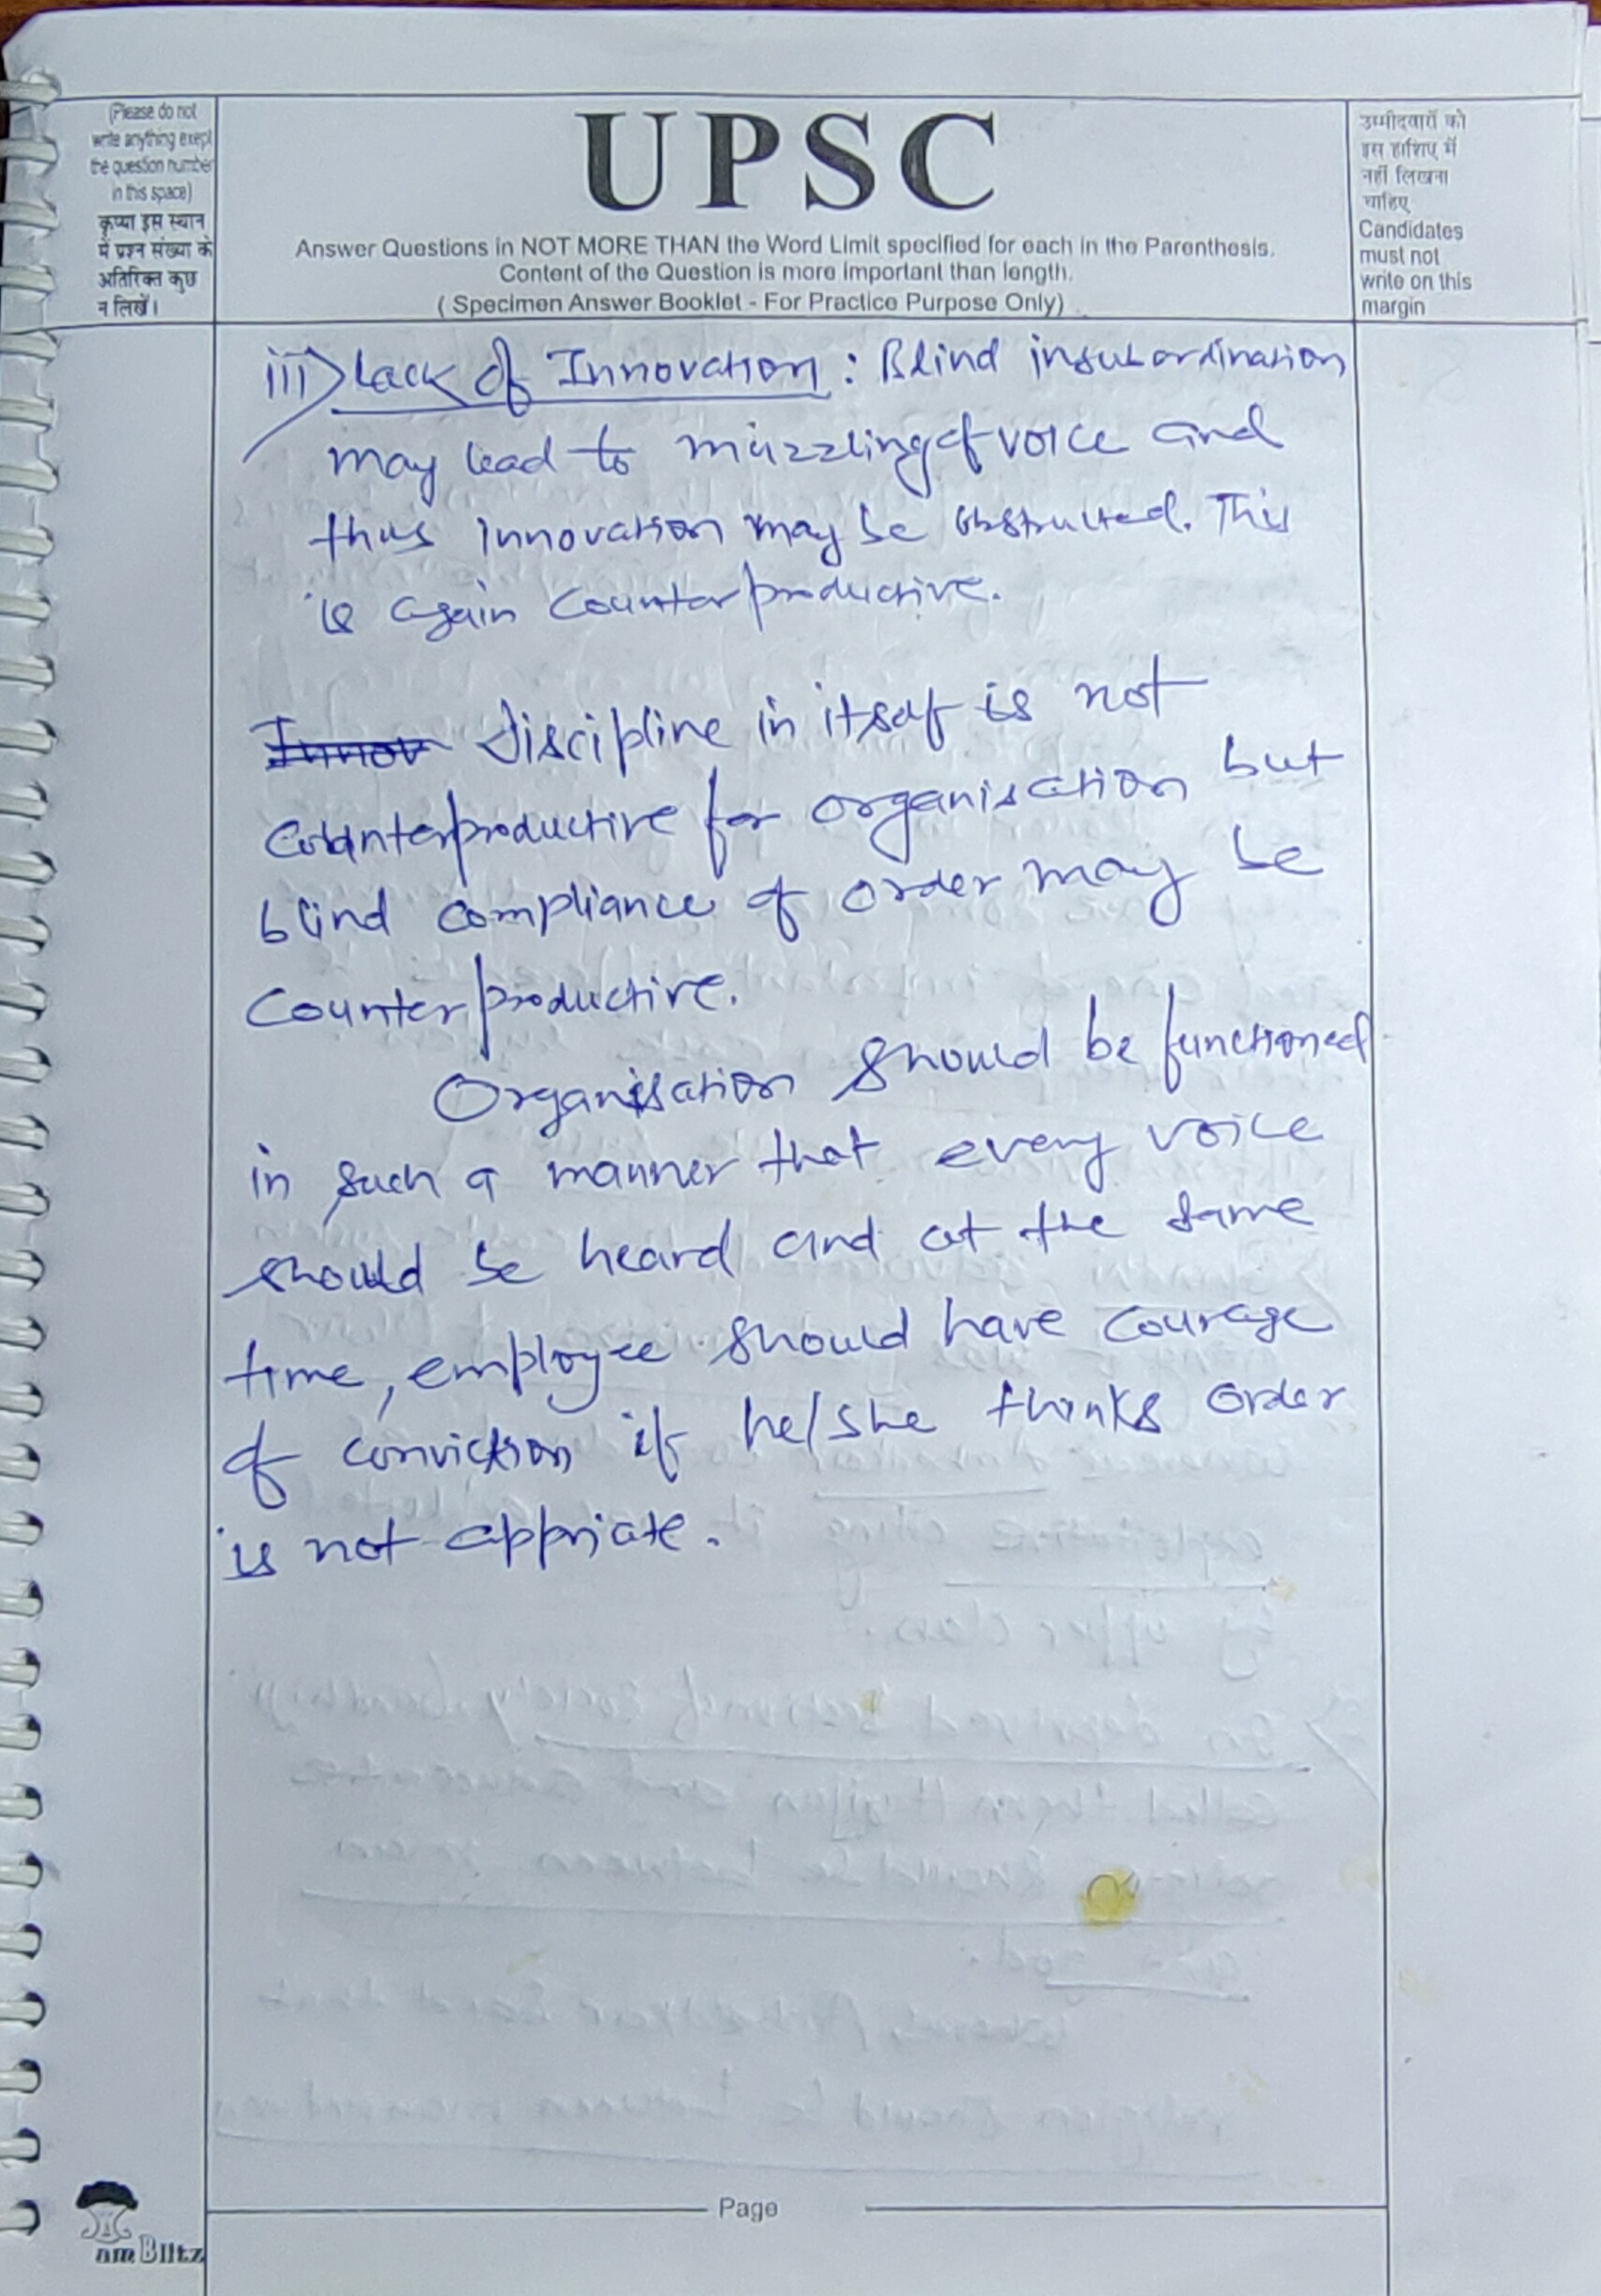 (Please do not
write anything exept
the question number
in this space)
कृप्या इस स्थान
में प्रश्न संख्या के
अतिरिक्त कुछ
न लिखें।
UPSC
Answer Questions in NOT MORE THAN the Word Limit specified for each in the Parenthesis.
Content of the Question is more important than length.
( Specimen Answer Booklet - For Practice Purpose Only)
उम्मीदवारों को
इस हाशिए में
नहीं लिखना
चाहिए
Candidates
must not
write on this
margin
iii) Lack of Innovation : Blind insubordination
may lead to muzzling of voice and
thus innovation may be obstructed. This
is again Counterproductive.
Innov Discipline in itself is not
Counterproductive for organisation but
blind compliance of order may be
Counterproductive.
Organisation should be functioned
in such a manner that every voice
should be heard and at the same
time, employee should have courage
of conviction if he/she thinks order
is not appriate.
Page
Blitz